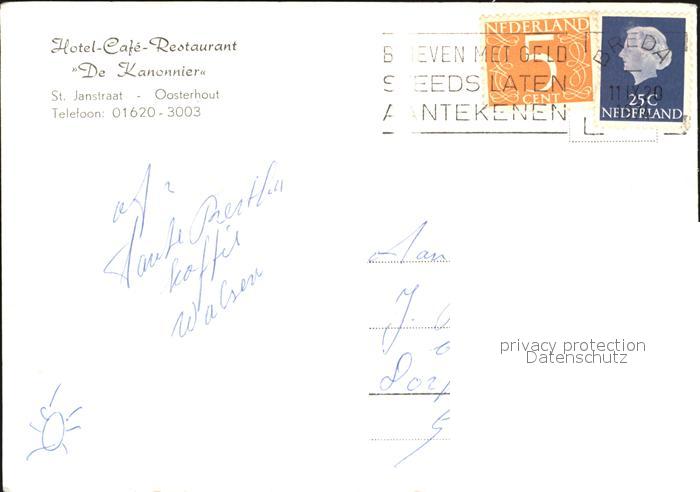 Hotel-Café-Restaurant
»De Kanonnier«
St. Janstraat - Oosterhout
Telefoon: 01620-3003
NEDERLAND
5
CENT
25C
NEDERLAND
BREDA
BRIEVEN MET GELD
STEEDS LATEN
AANTEKENEN
Tante Bertha
koffie
Walsen
Aan
J.
privacy protection
Datenschutz
5